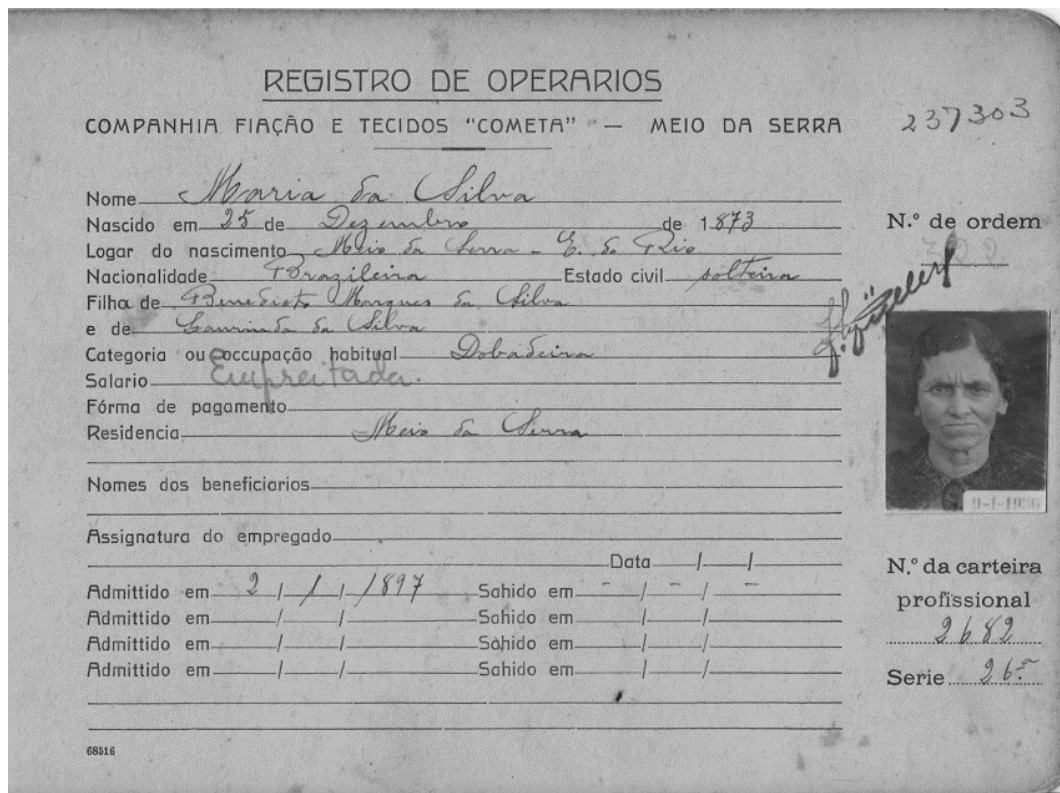 REGISTRO DE OPERARIOS
COMPANHIA FIAÇÃO E TECIDOS "COMETA" — MEIO DA SERRA
237303
Nome Maria da Silva
Nascido em 25 de Dezembro de 1873
N.º de ordem
Logar do nascimento Meio da Serra - E. do Rio
Nacionalidade Brazileira Estado civil solteira
Filha de Benedicto Marques da Silva
e de Laurinda da Silva
Categoria ou occupação habitual Dobadeira
Salario Empreitada.
Fórma de pagamento
Residencia Meio da Serra
Nomes dos beneficiarios
9-1-1936
Assignatura do empregado
Data / /
N.º da carteira
profissional
2682
Serie 26ª
Admittido em 2 / 1 / 1897 Sahido em - / - / -
Admittido em / / Sahido em / /
Admittido em / / Sahido em / /
Admittido em / / Sahido em / /
68516